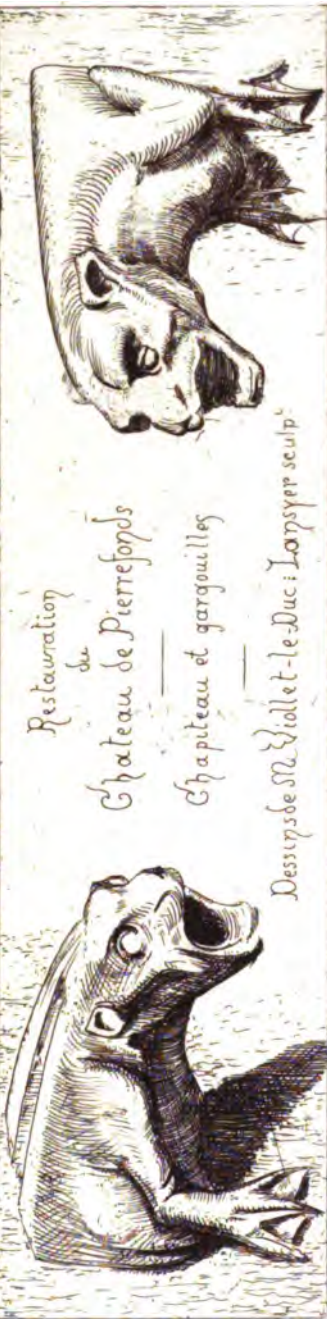 Restauration
du
Chateau de Pierrefonds
Chapiteau et gargouilles
Dessins de M. Viollet-le-Duc : Lansyer sculpt